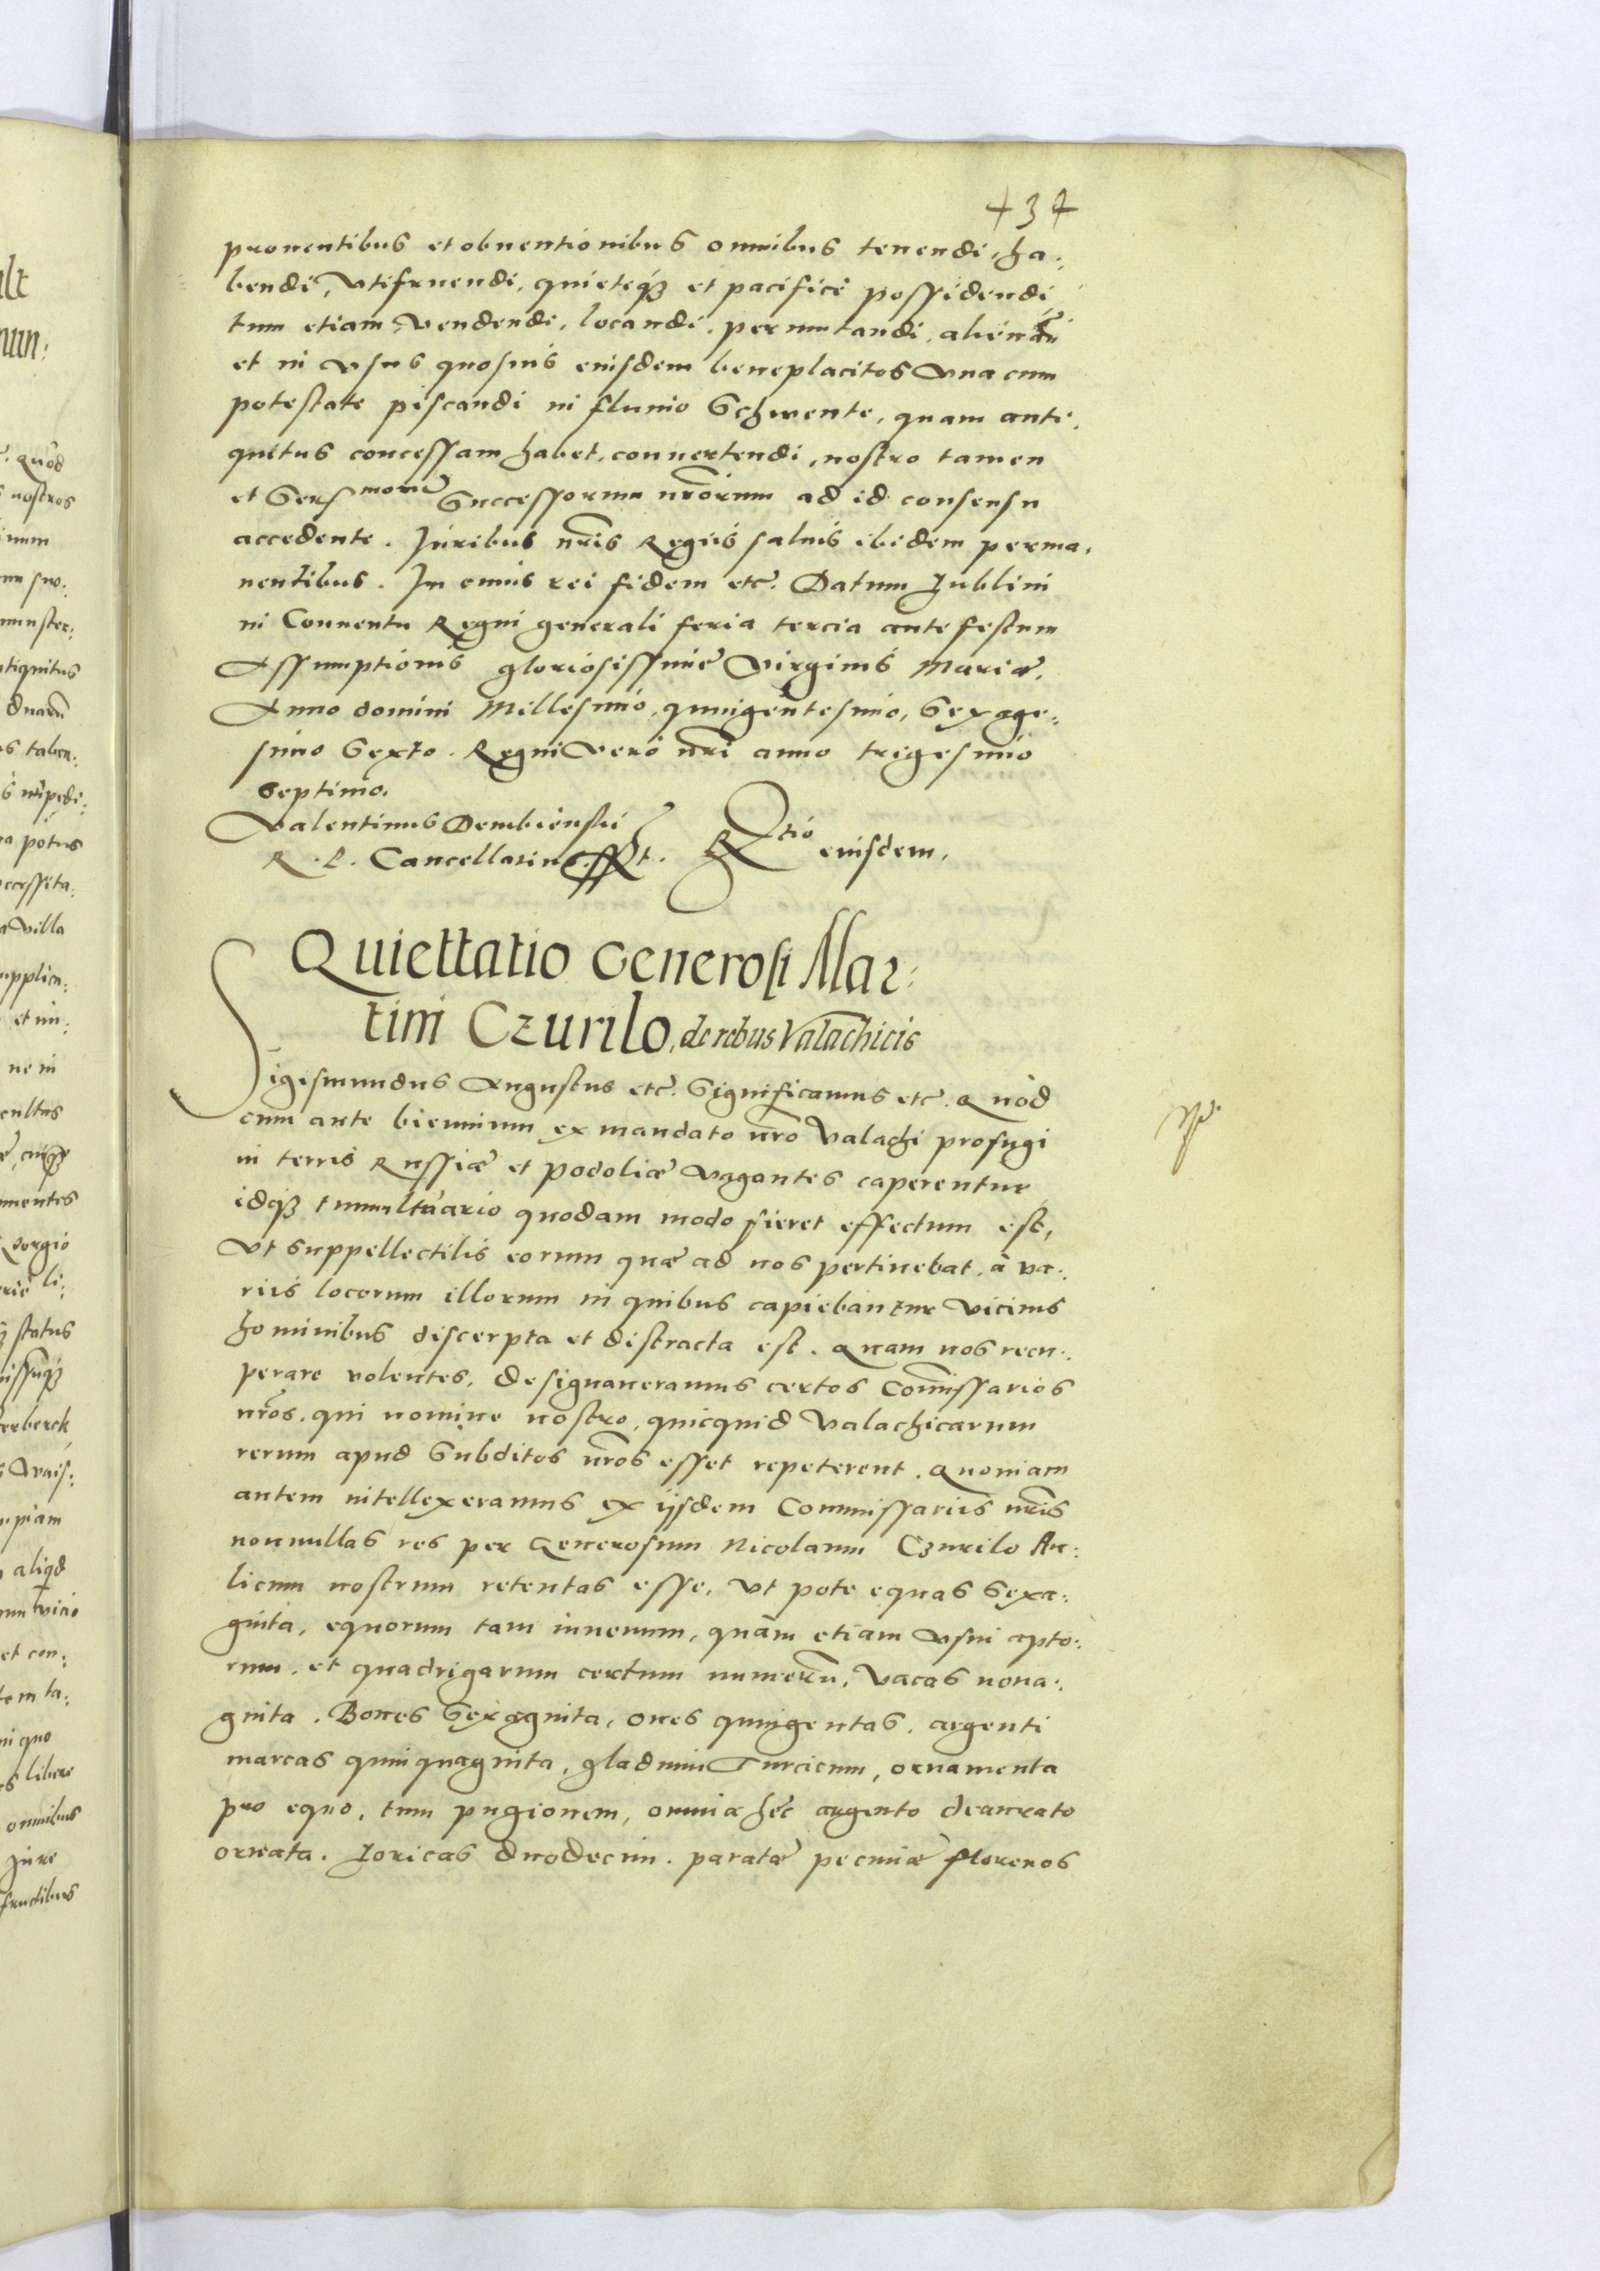 437
prouentibus et obuentionibus omnibus tenendi, ha:
bendi, vtifruendi, quieteq́3 et pacifice possidendi
tum etiam vendendi, locandi, permutandi, alienan̄
et in vsus quosuis eiusdem beneplacitos vna cum
potestate piscandi in fluuio Schwente, quam anti:
quitus concessam habet, conuertendi, nostro tamen
et Sersmorū Successorum nr̄orum ad id consensu
accedente. Iuribus nr̄is Regiis saluis ibidem perma:
nentibus. In cuius rei fidem etc̄. Datum Lublini
in Conuentu Regni generali feria tercia ante festum
Assumptionis gloriosissimę Virginis Marię,
Anno domini Millesimo, quingentesimo, Sexage:
simo Sexto. Regni vero nr̄i anno trigesimo
septimo.
Valentinus Dembienski
R. P. Cancellarius sspt. Rtio eiusdem.
Quiettatio Generosi Mar:
tini Czurilo, de rebus Valachicis
Sigismundus Augustus etc̄. Significamus etc̄. Quod
cum ante biennium ex mandato nr̄o Valachi profugi
in terris Russiæ et Podoliæ vagantes caperentur
idq́3 tumultuario quodam modo fieret effectum est,
vt suppellectilis eorum quæ ad nos pertinebat, à va:
riis locorum illorum in quibus capiebantur vicinis
hominibus discerpta et distracta est. Quam nos recu:
perare volentes, designaueramus certos Com̄issarios
nr̄os, qui nomine nostro, quicquid Valachicarum
rerum apud Subditos nr̄os esset repeterent. Quoniam
autem intellexeramus ex ijsdem Commissariis nr̄is
nonnullas res per Generosum Nicolaum Czurilo Au:
licum nostrum retentas esse, vt pote equas Sexa:
ginta, equorum tam iuuenum, quàm etiam vsui apto:
rum, et quadrigarum certum numerū, vacas nona:
ginta. Boues Sexaginta, oues quingentas, argenti
marcas quinquaginta, gladium Turcicum, ornamenta
pro equo, tum pugionem, omnia hęc argento deaurato
ornata. Loricas duodecim. paratæ pecuniæ florenos